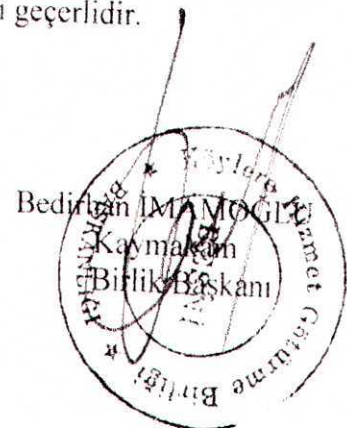 geçerlidir.
Bedirhan İMAMOĞLU
Kaymakam
Birlik Başkanı
Köylere Hizmet Götürme Birliği